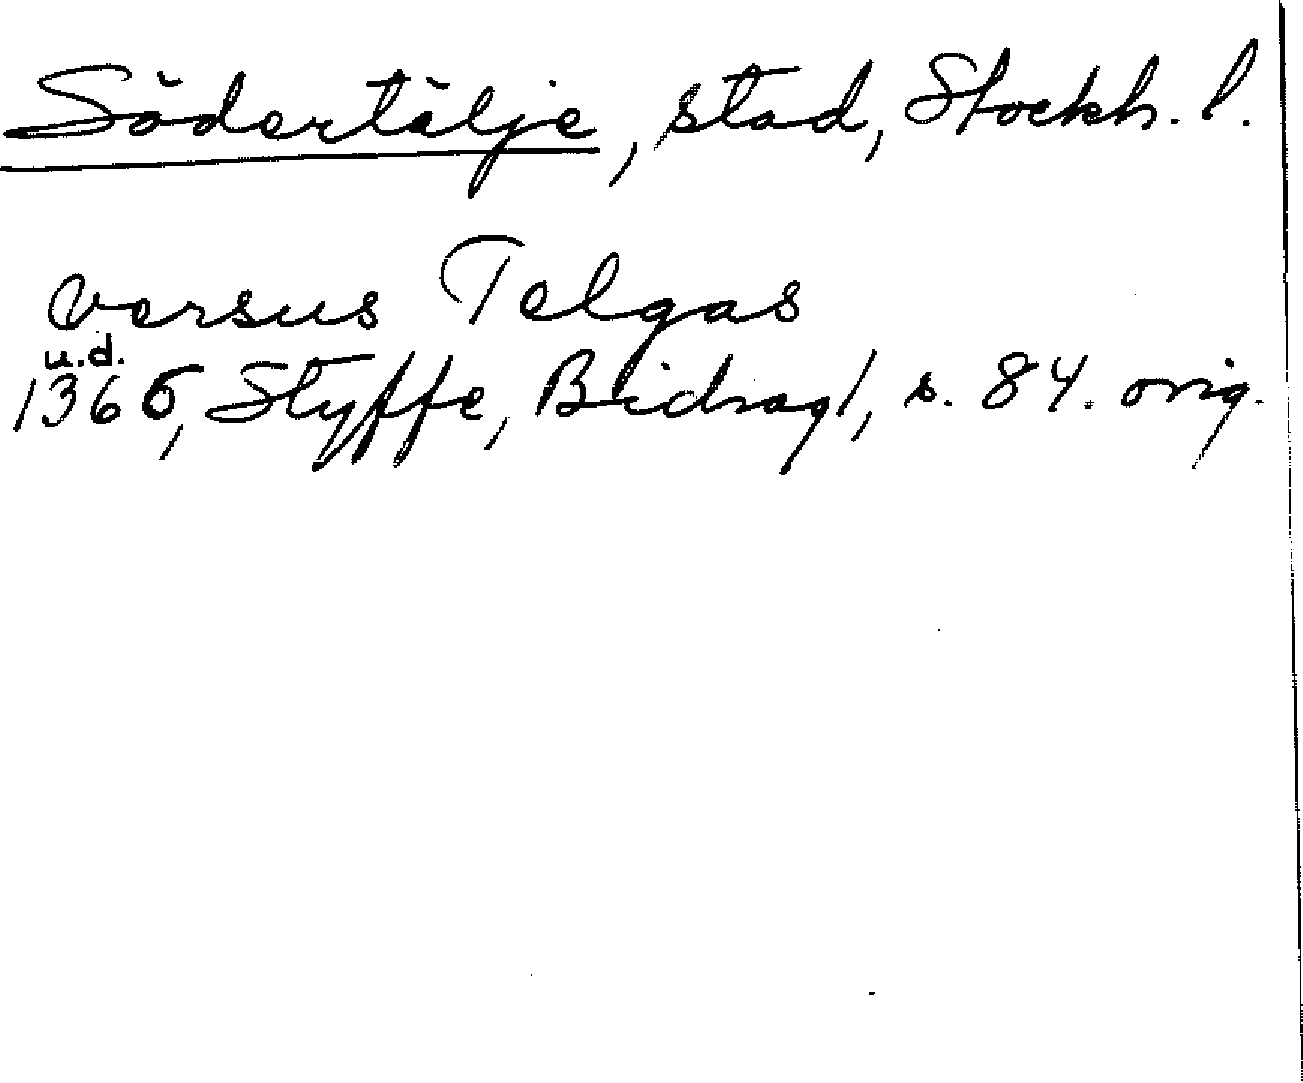 Södertälje, stad, Stockh. l.
versus Telgas
u.d.
1366, Styffe, Bidrag 1, s. 84. orig.